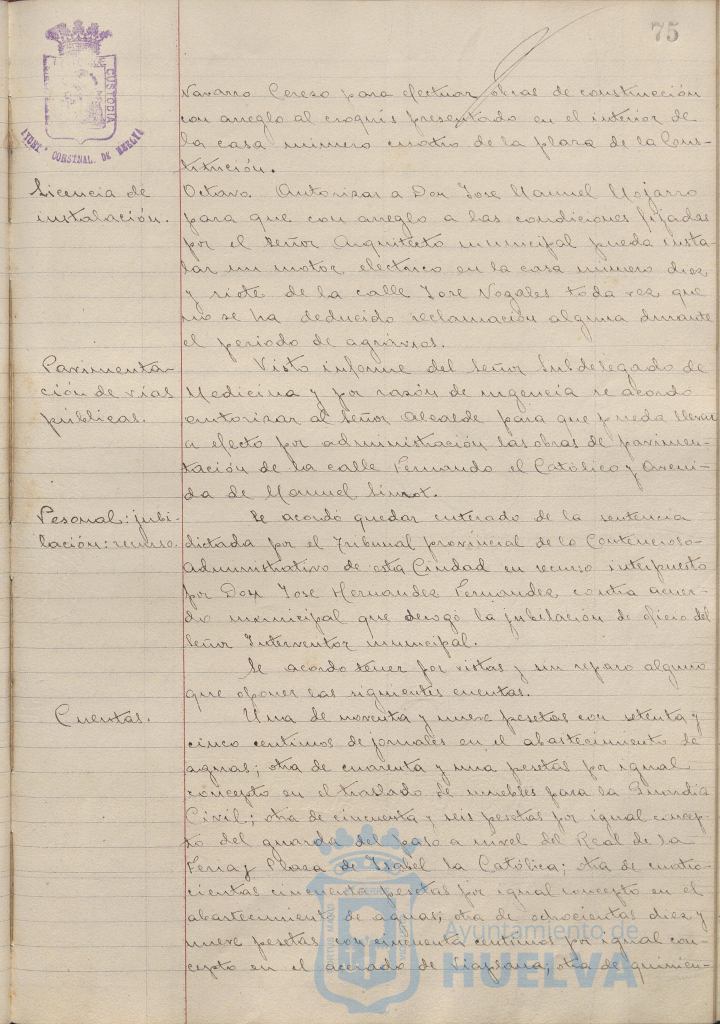 75
CUSTODIA
AYUNT. CONSTNAL. DE HUELVA
Navarro Cerezo para efectuar obras de construcción
con arreglo al croquis presentado en el interior de
la casa número cuatro de la plaza de la Cons-
titución.
Licencia de
instalación.
Octavo. Autorizar a Don Jose Manuel Mojarro
para que con arreglo a las condiciones fijadas
por el Señor Arquitecto municipal pueda insta-
lar un motor electrico en la casa número diez
y siete de la calle Jose Nogales toda vez que
no se ha deducido reclamación alguna durante
el periodo de agravios.
Pavimenta-
ción de vias
públicas.
Visto informe del Señor Subdelegado de
Medicina y por razón de urgencia se acordo
autorizar al Señor Alcalde para que pueda llevar
a efecto por administración las obras de pavimen-
tación de la calle Fernando el Católico y Aveni-
da de Manuel Siurot.
Pesonal: jubi-
lación: recurso.
Se acordó quedar enterado de la sentencia
dictada por el Tribunal provincial de lo Contencioso-
Administrativo de esta Ciudad en recurso interpuesto
por Don Jose Hernandez Fernandez contra acuer-
do municipal que derogó la jubilación de oficio del
Señor Interventor municipal.
Se acordo tener por vistas y sin reparo alguno
que oponer las siguientes cuentas.
Cuentas.
Una de noventa y nueve pesetas con setenta y
cinco centimos de jornales en el abastecimiento de
aguas; otra de cuarenta y una pesetas por igual
concepto en el traslado de muebles para la Guardia
Civil; otra de cincuenta y seis pesetas por igual concep-
to del guarda del paso a nivel del Real de la
Feria y Plaza de Isabel la Católica; otra de cuatro-
cientas cincuenta pesetas por igual concepto en el
abastecimiento de aguas; otra de ochocientas diez y
nueve pesetas con cincuenta centimos por igual con-
cepto en el acerado de Viaplana; otra de quinien-
Ayuntamiento de
HUELVA